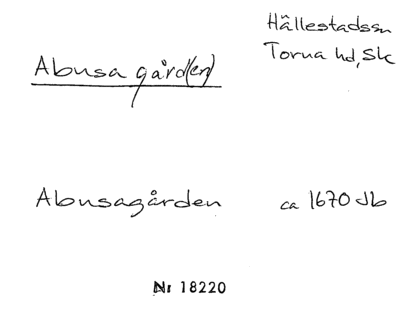 Hällestadssn
Torna hd, Sk
Abusa gård(en)
Abusagården ca 1670 Jb
Nr 18220